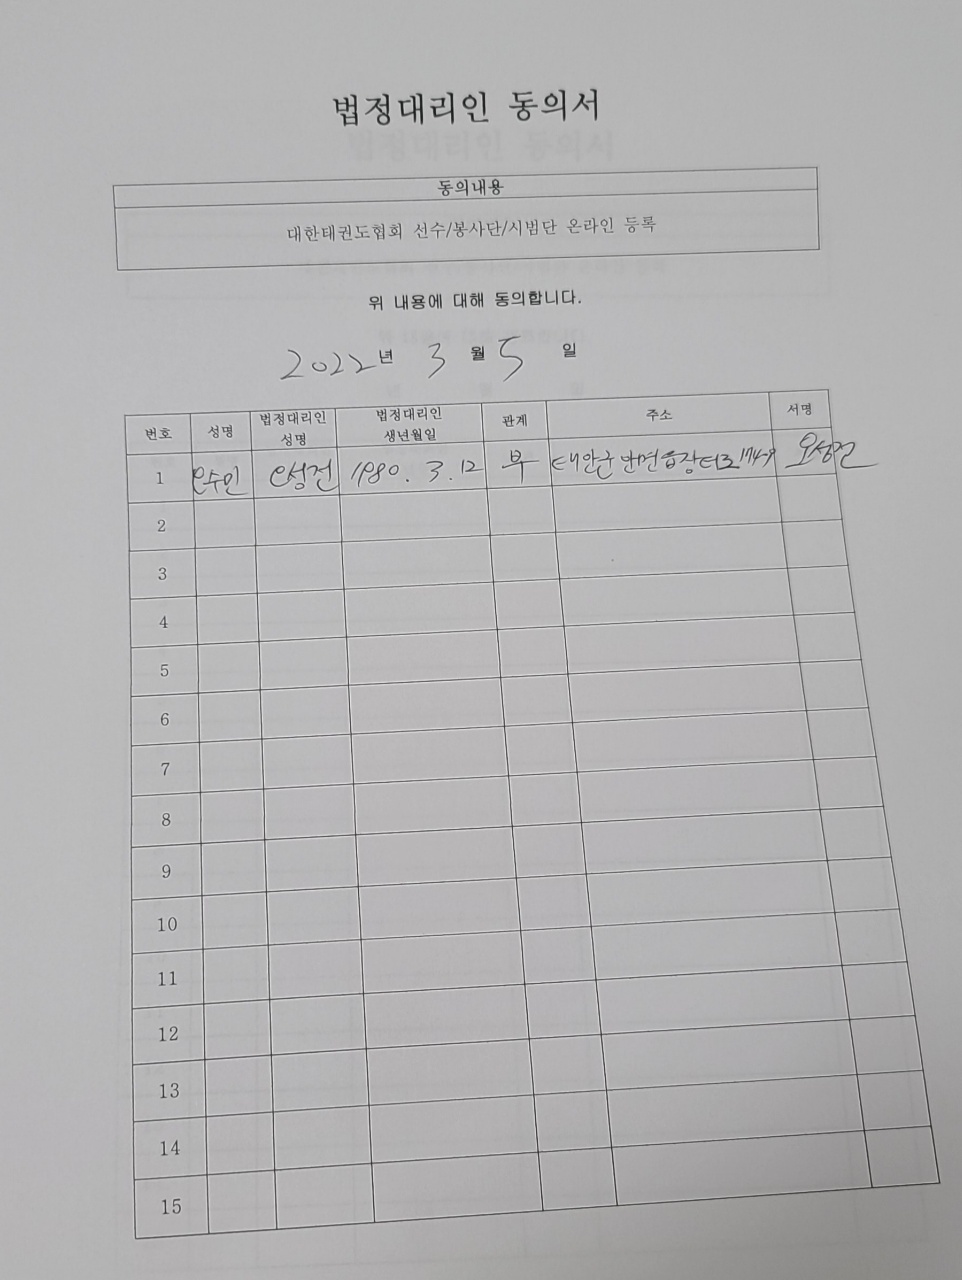 법정대리인 동의서
동의내용
대한태권도협회 선수/봉사단/시범단 온라인 등록
위 내용에 대해 동의합니다.
2022년 3월 5일
번호 성명 법정대리인 성명 법정대리인 생년월일 관계 주소 서명
1 오수민 오성전 1980. 3. 12 부 태안군 안면읍장터로 174-9 오성전
2
3
4
5
6
7
8
9
10
11
12
13
14
15